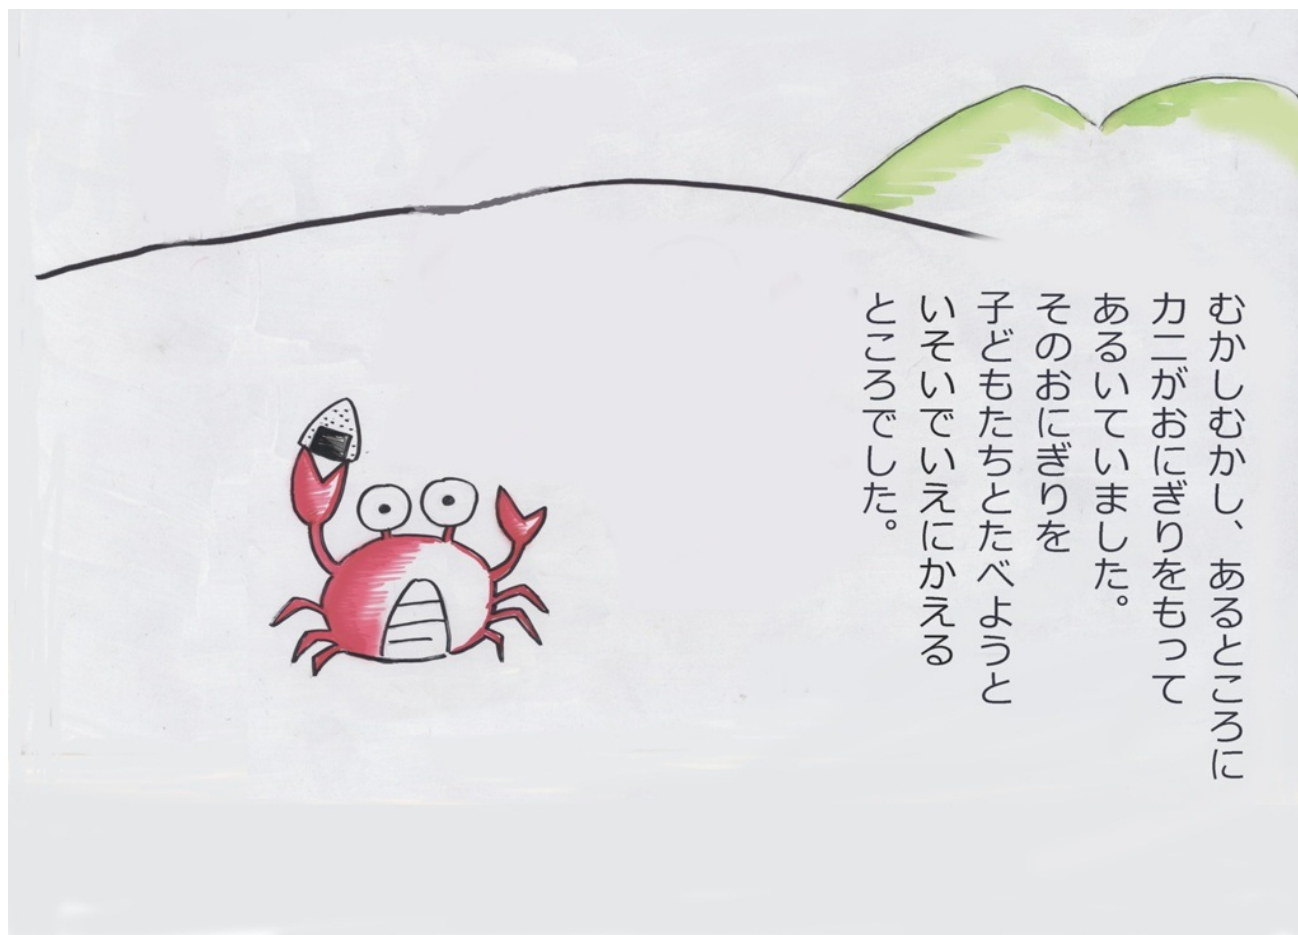 むかしむかし、あるところに
カニがおにぎりをもって
あるいていました。
そのおにぎりを
子どもたちとたべようと
いそいでいえにかえる
ところでした。